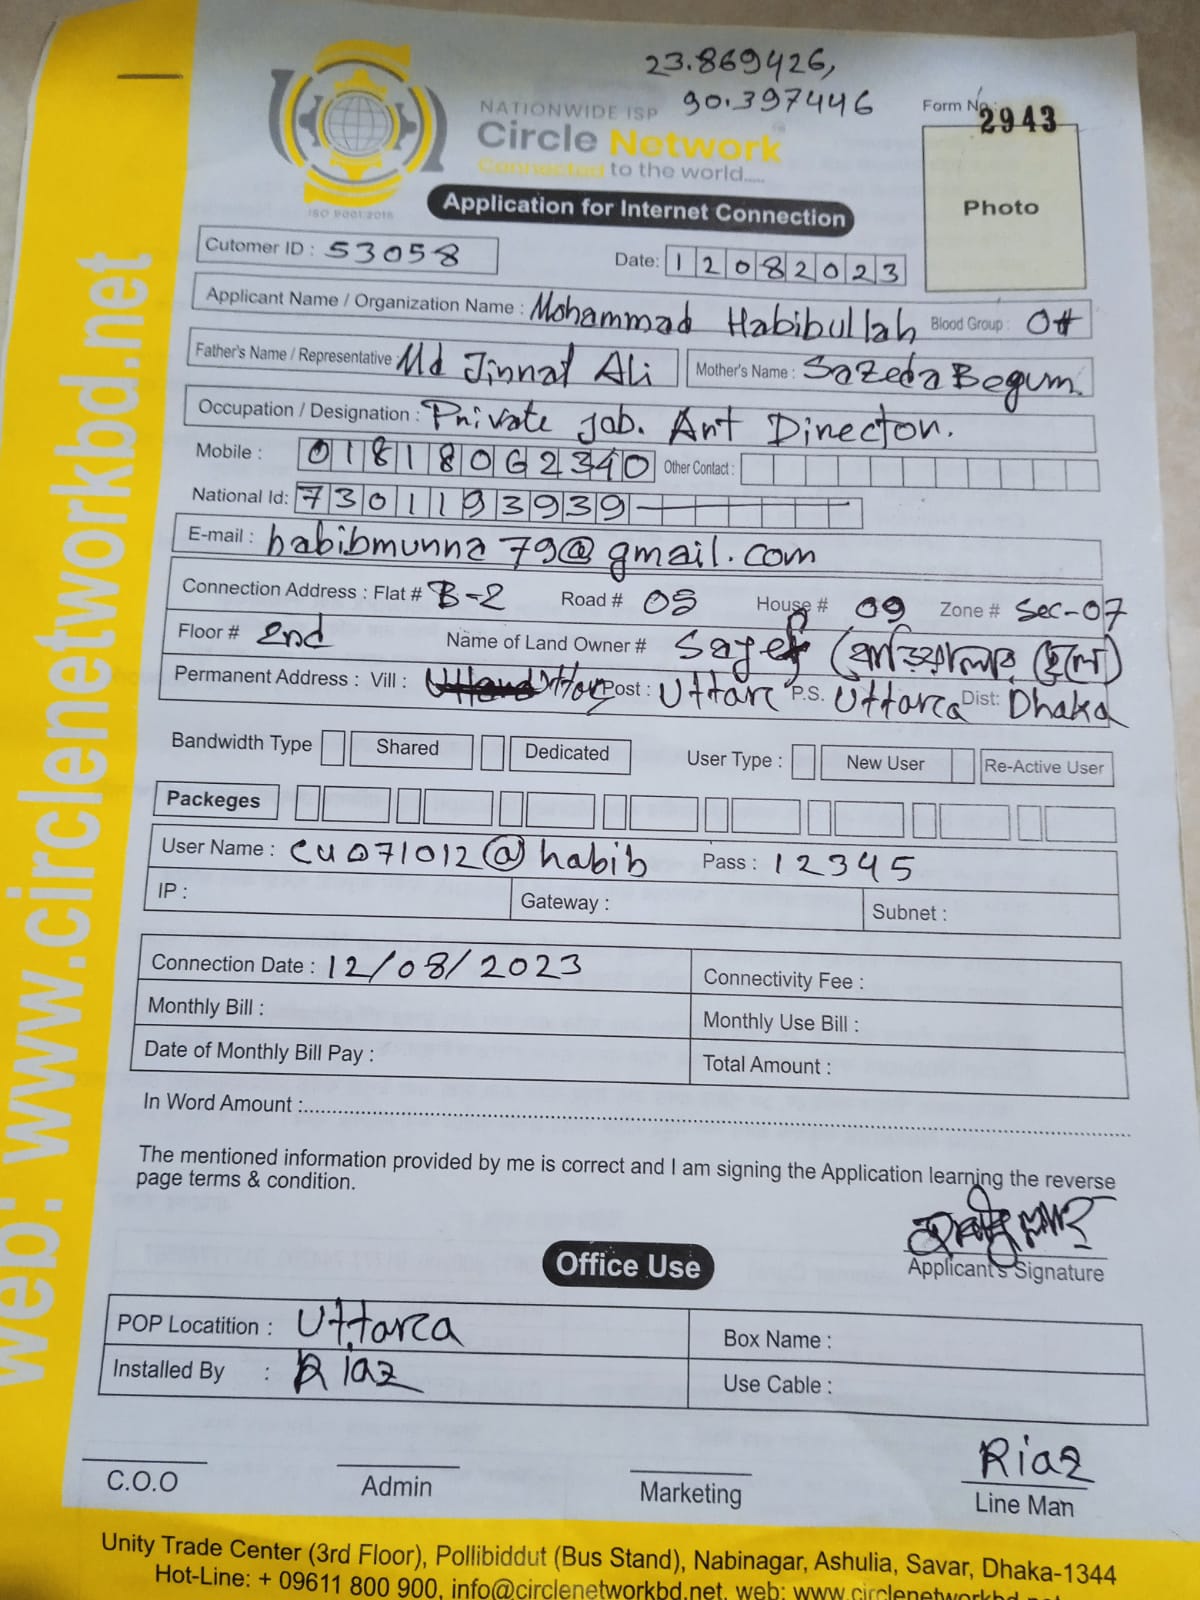 23.869426,
90.397446
NATIONWIDE ISP
Circle Network
Connected to the world.....
ISO 9001:2015
Form No.: 2943
Photo
Application for Internet Connection
Cutomer ID : 53058
Date: 12082023
Applicant Name / Organization Name : Mohammad Habibullah Blood Group : O+
Father's Name / Representative : Md Jinnat Ali Mother's Name : Sazeda Begum.
Occupation / Designation : Private Job. Art Director.
Mobile : 01818062340 Other Contact :
National Id: 7301193939
E-mail : habibmunna79@gmail.com
Connection Address : Flat # B-2 Road # 05 House # 09 Zone # Sec-07
Floor # 2nd Name of Land Owner #
Permanent Address : Vill : Post : Uttar P.S. Uttara Dist: Dhaka
Bandwidth Type Shared Dedicated User Type : New User Re-Active User
Packeges
User Name : cu071012@habib Pass : 12345
IP : Gateway : Subnet :
Connection Date : 12/08/2023 Connectivity Fee :
Monthly Bill : Monthly Use Bill :
Date of Monthly Bill Pay : Total Amount :
In Word Amount :
The mentioned information provided by me is correct and I am signing the Application learning the reverse
page terms & condition.
Applicant's Signature
Office Use
POP Locatition : Uttara Box Name :
Installed By : Riaz Use Cable :
Riaz
C.O.O Admin Marketing Line Man
Unity Trade Center (3rd Floor), Pollibiddut (Bus Stand), Nabinagar, Ashulia, Savar, Dhaka-1344
Hot-Line: + 09611 800 900, info@circlenetworkbd.net, web: www.circlenetworkbd.net
web: www.circlenetworkbd.net